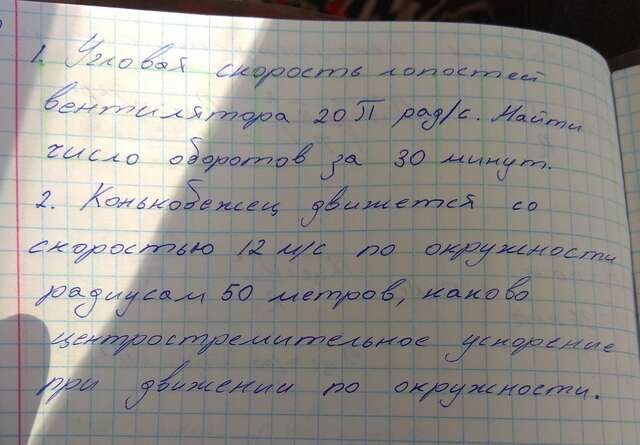 1. Угловая скорость лопостей
вентилятора 20П рад/с. Найти
число оборотов за 30 минут.
2. Конькобежец движется со
скоростью 12 м/с по окружности
радиусам 50 метров, каково
центростремительное ускорение
при движении по окружности.